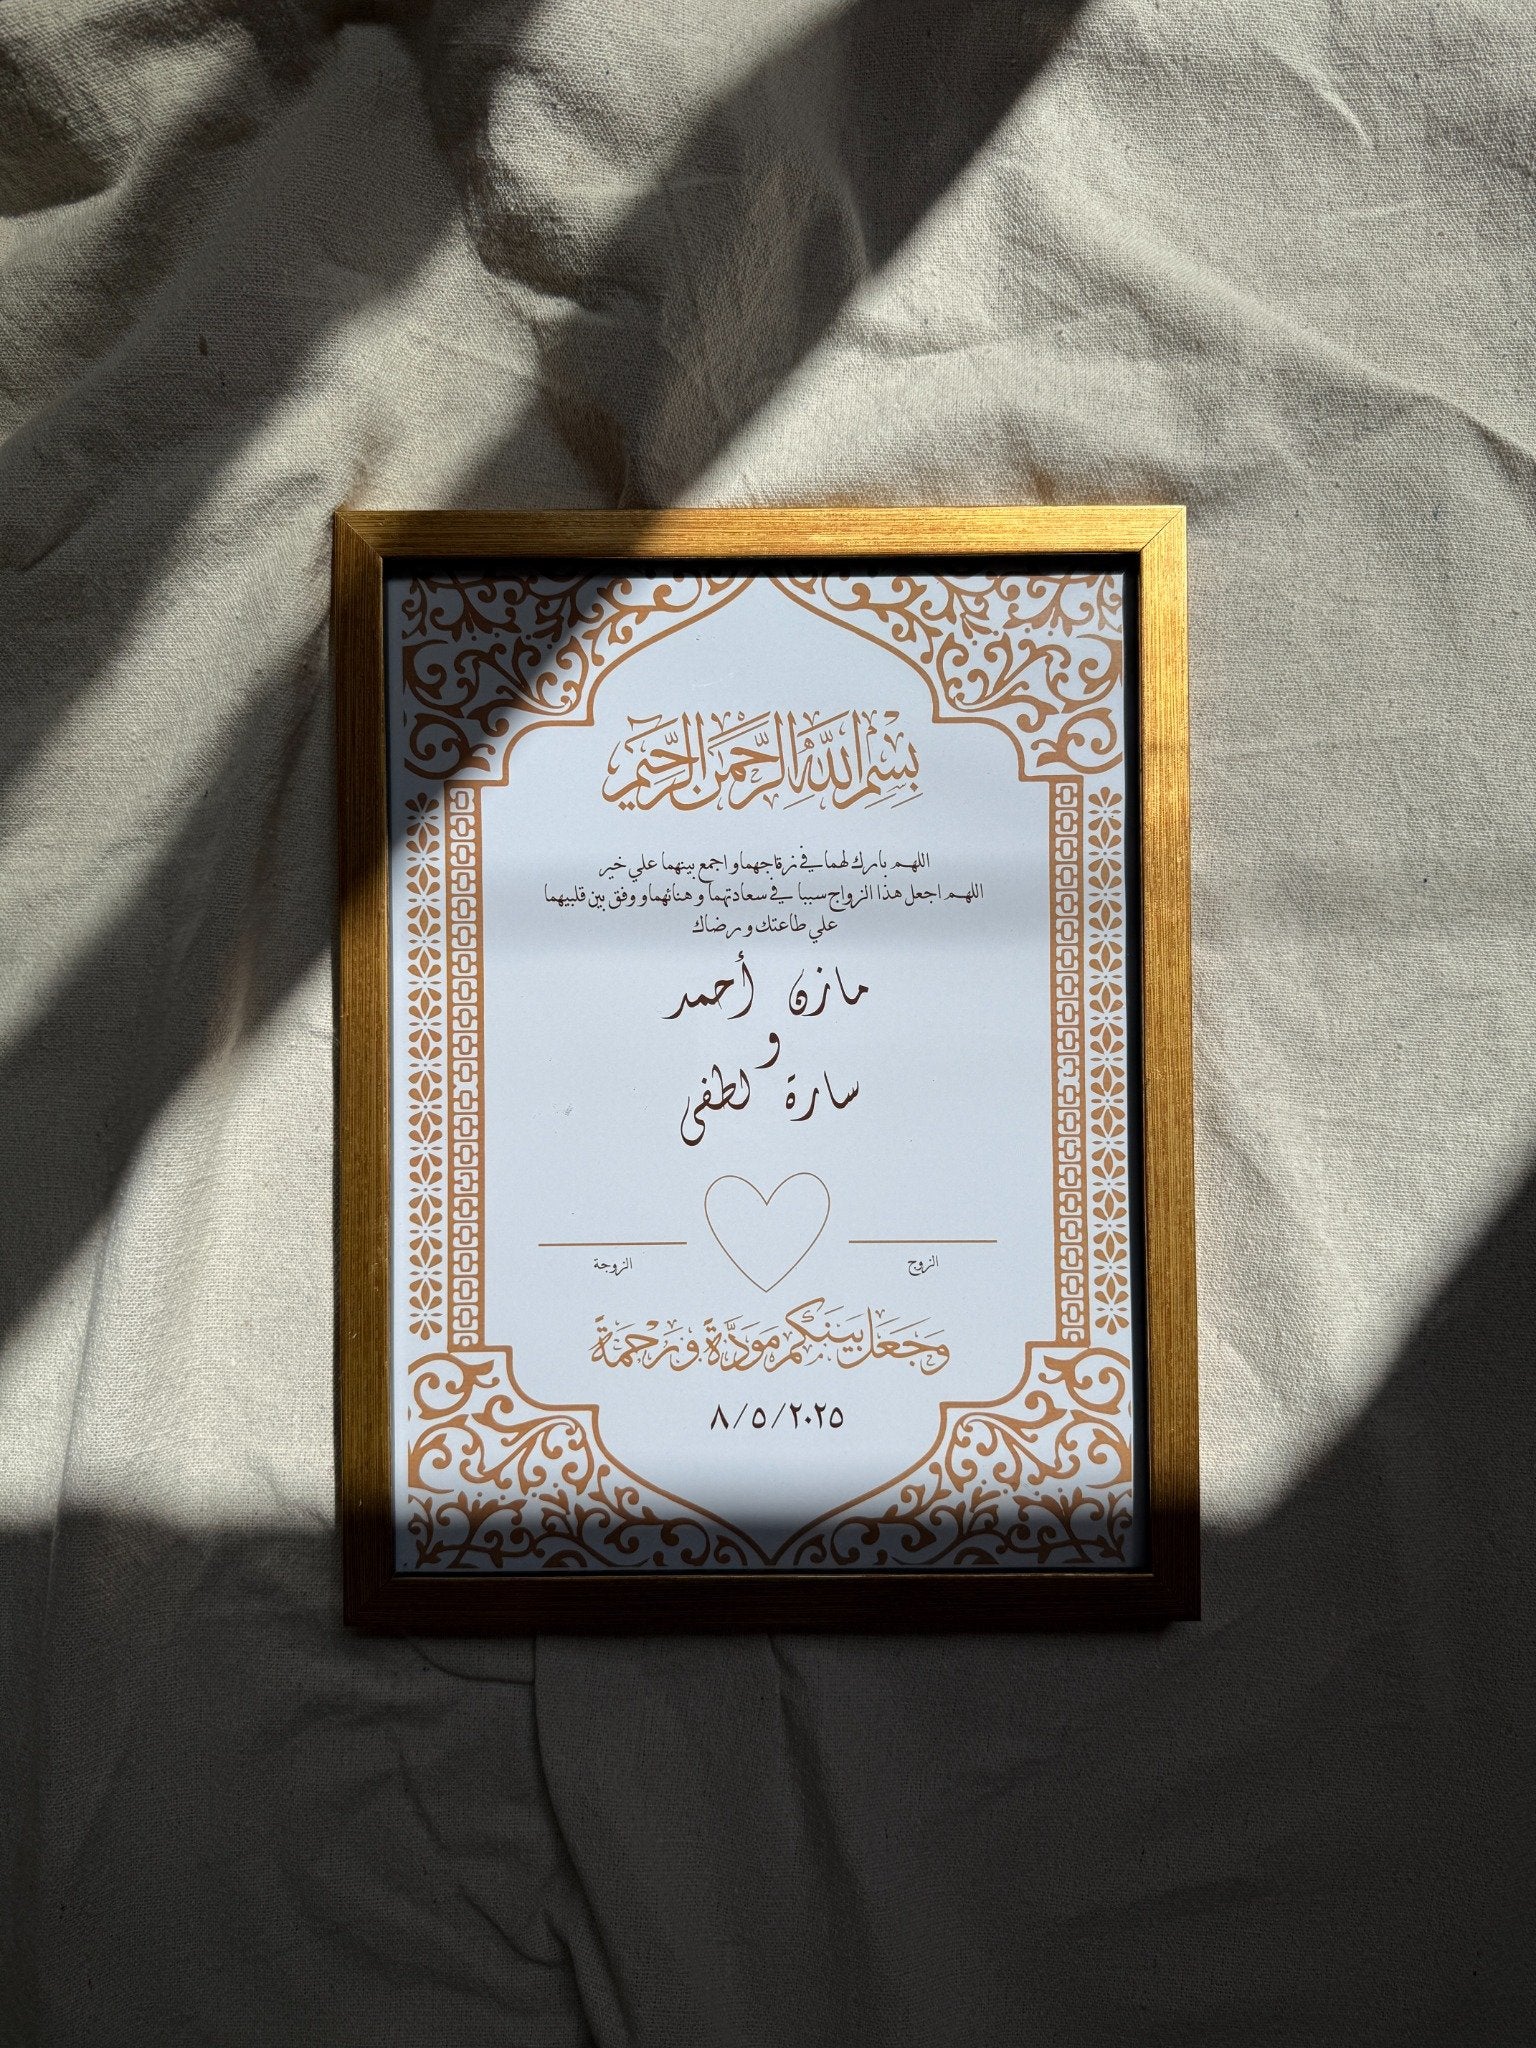 بِسْمِ اللَّهِ الرَّحْمَنِ الرَّحِيمِ
اللهم بارك لهما في زواجهما و اجمع بينهما علي خير
اللهم اجعل هذا الزواج سببا في سعادتهما و هنائهما و وفق بين قلبيهما
علي طاعتك و رضاك
مازن أحمد
و
سارة لطفى
الزوج
الزوجة
وَجَعَلَ بَيْنَكُم مَوَدَّةً وَرَحْمَةً
٨/٥/٢٠٢٥